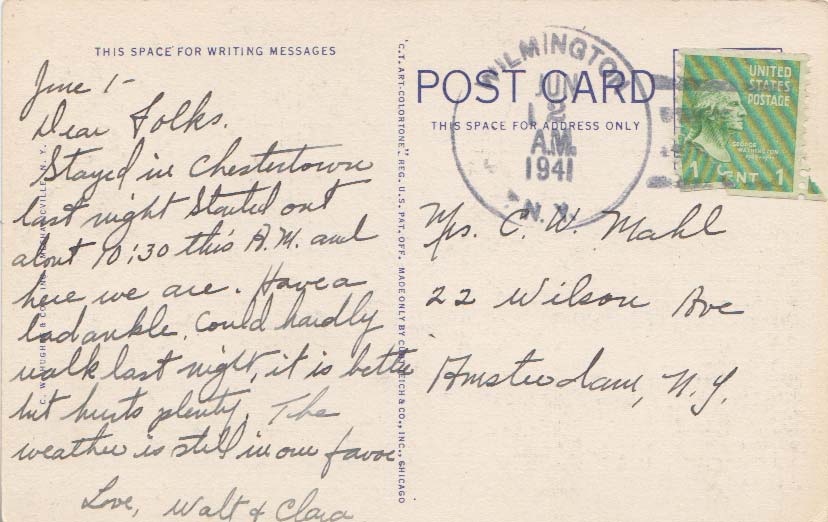 THIS SPACE FOR WRITING MESSAGES
June 1-
Dear Folks.
Stayed in Chestertown
last night Started out
about 10:30 this A.M. and
here we are. Have a
bad ankle. Could hardly
walk last night, it is better
but hurts plenty. The
weather is still in our favor
Love, Walt & Clara
"C.T. ART-COLORTONE" REG. U.S. PAT. OFF. MADE ONLY BY CURT TEICH & CO., INC., CHICAGO
POST CARD
THIS SPACE FOR ADDRESS ONLY
WILMINGTON
JUN
2
A.M.
1941
N.Y.
UNITED
STATES
POSTAGE
GEORGE
WASHINGTON
1 CENT 1
Mrs. C. W. Mahl
22 Wilson Ave
Amsterdam, N.Y.